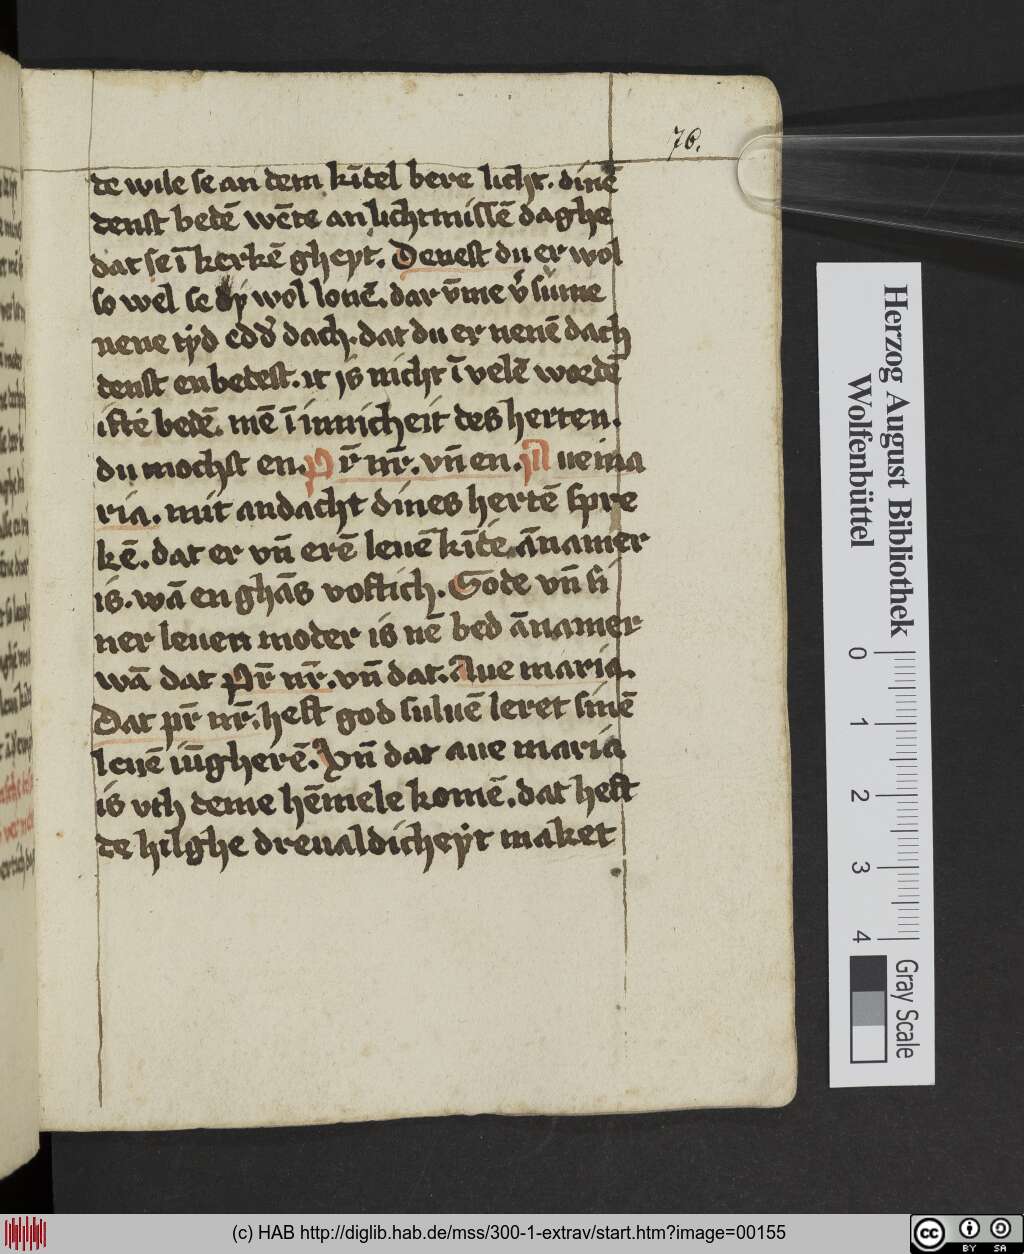 76.
de wile se an dem kīdel bere licht. dinē
denst bedē wēte an lichtmissē daghe
dat se ī kerkē gheyt. Deuest du er wol
so wel se dy wol lonē. dar v̄me v̾ sume
nene tyd edd̾ dach. dat du er nenē dach
denst enbedest. it is nicht ī velē wordē
istē bedē. mē ī innicheit des herten.
du mochst en. Pr̄ nr̄. vn̄ en. Aue ma
ria. mit andacht dines hertē spre
kē. dat er vn̄ erē leuē kīde ānamer
is. wā en ghās voftich. Gode vn̄ si
ner leuen moder is nē bed ānamer
wā dat Pr̄ nr̄. vn̄ dat. Aue maria.
Dat pr̄ nr̄. heft god suluē leret sinē
leuē iūgherē. Vn̄ dat aue maria
is vth deme hēmele komē. dat heft
de hilghe dreualdicheyt maket
Herzog August Bibliothek
Wolfenbüttel
0
1
2
3
4
Gray Scale
(c) HAB http://diglib.hab.de/mss/300-1-extrav/start.htm?image=00155
cc
BY SA